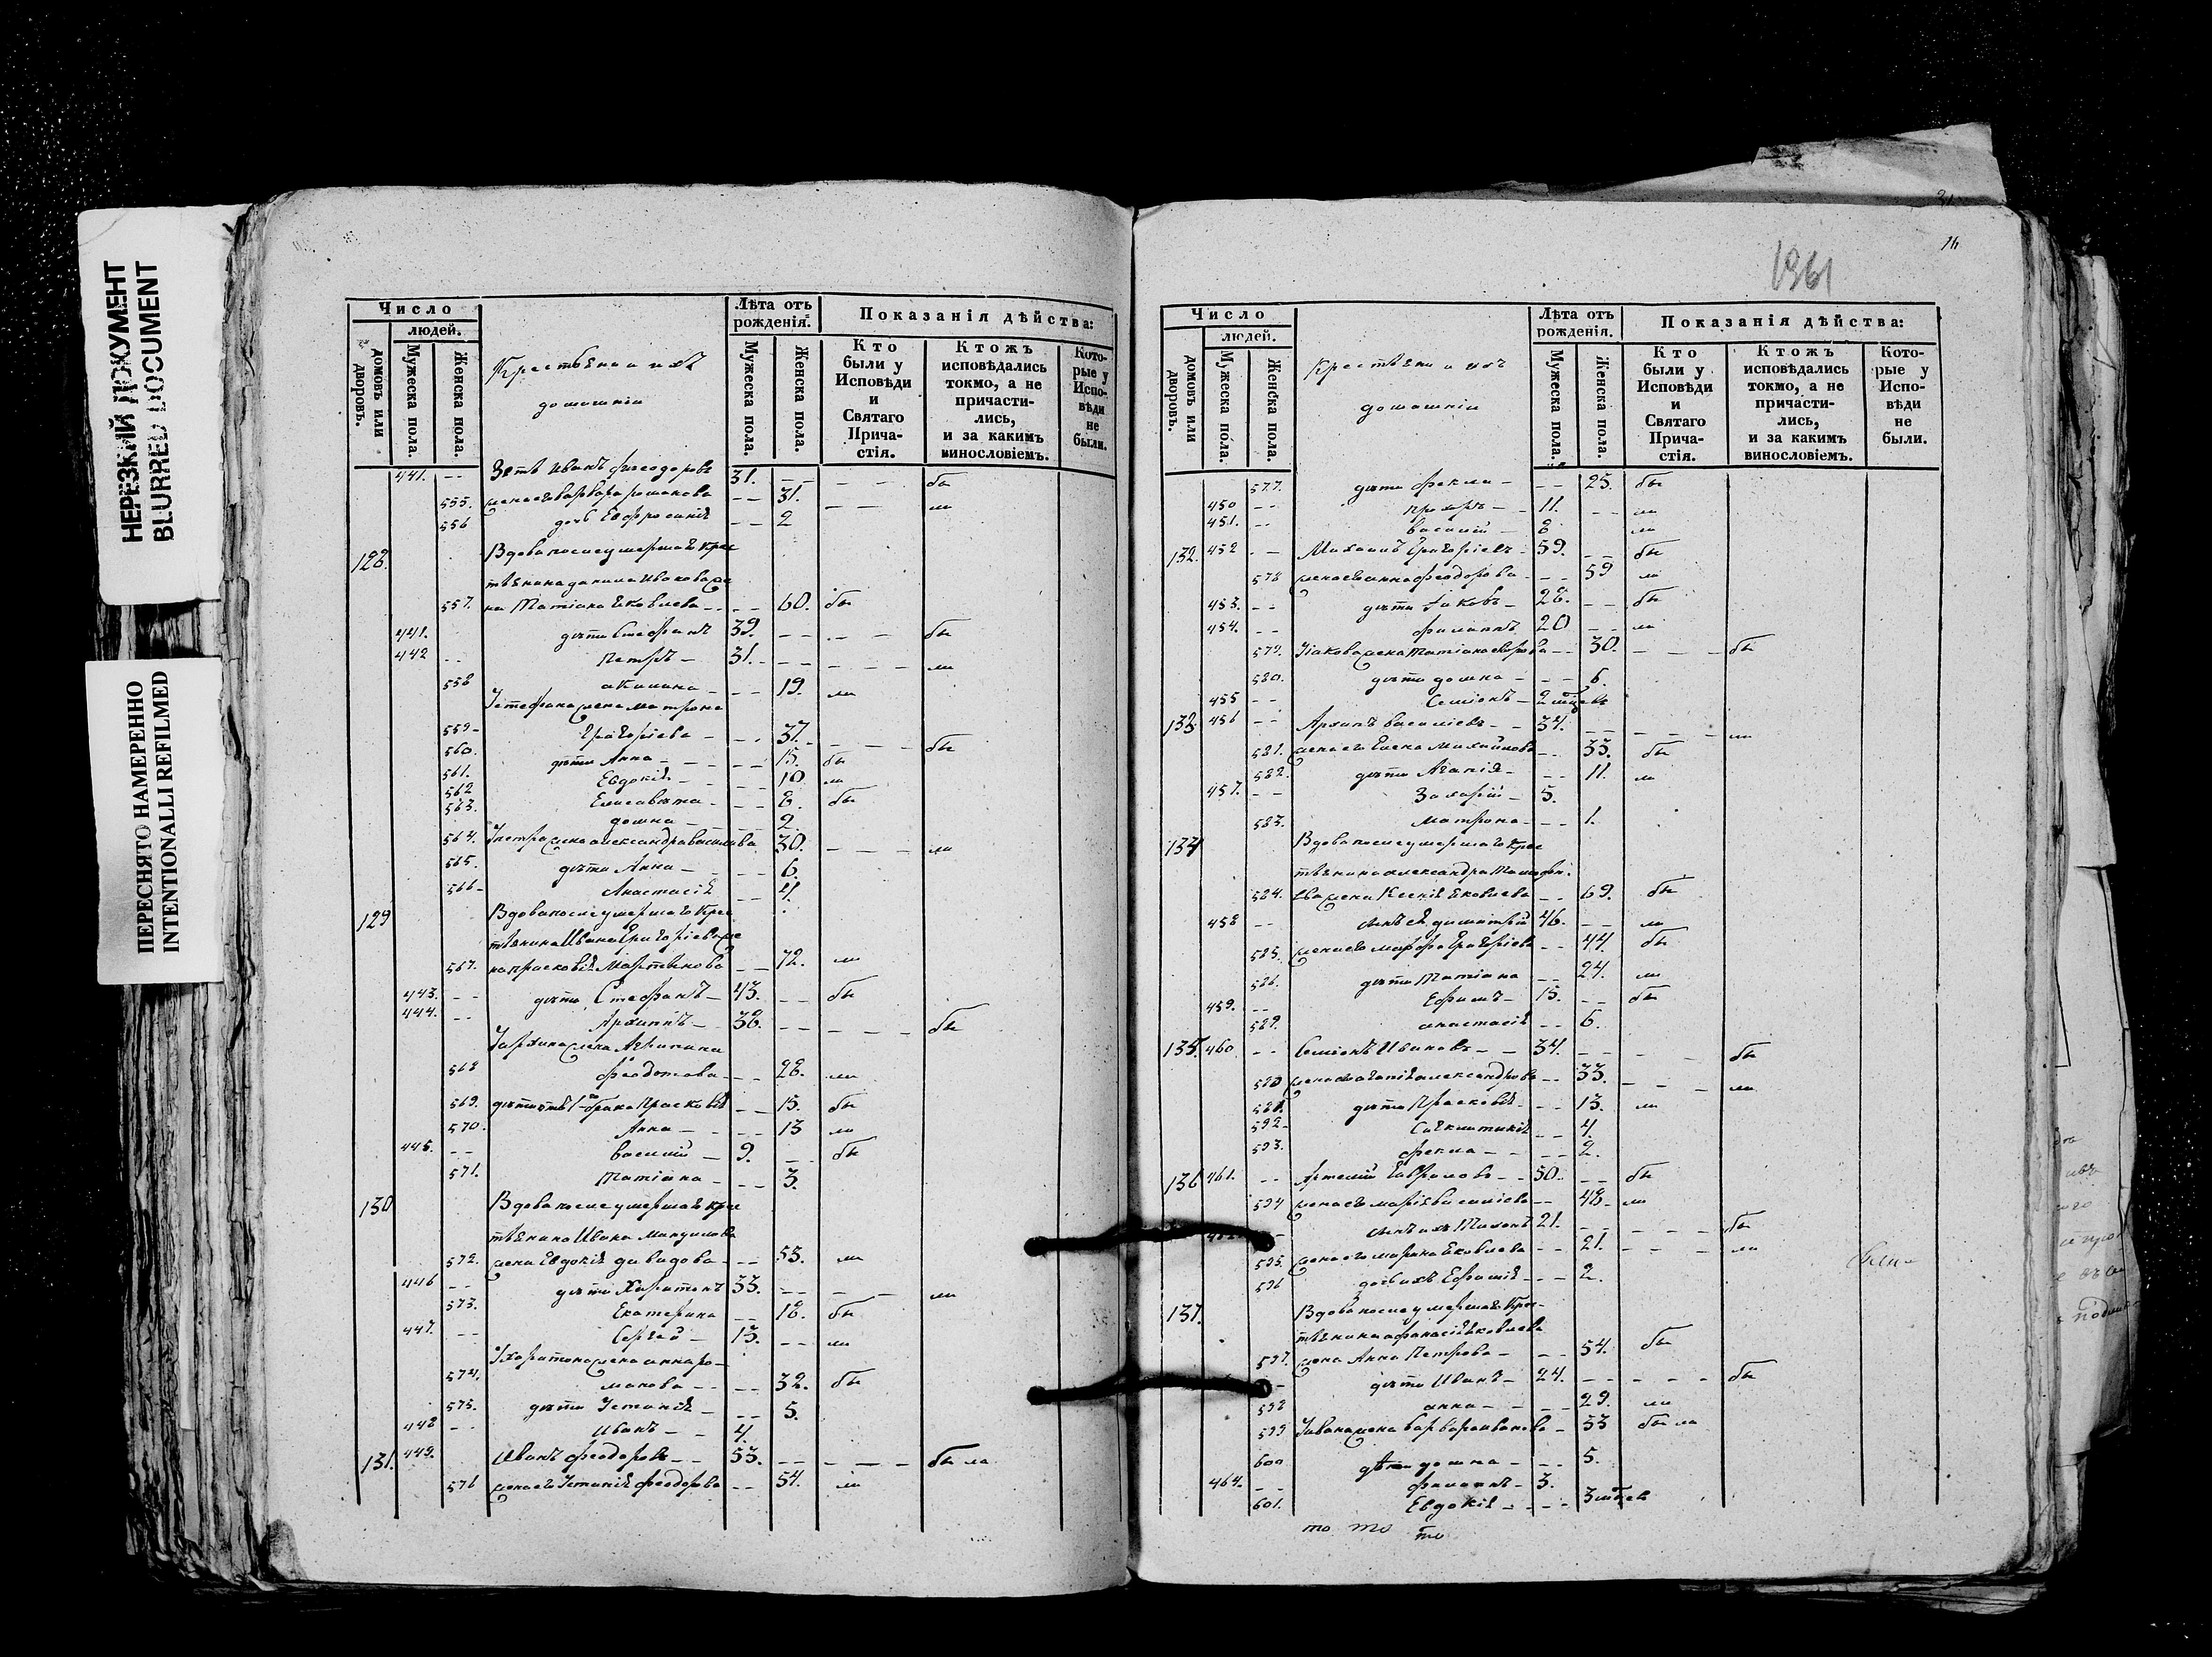 НЕРЕЗКИЙ ДОКУМЕНТ
BLURRED DOCUMENT
ПЕРЕСНЯТО НАМЕРЕННО
INTENTIONALLI REFILMED
Число
людей.
домовъ или дворовъ.
Мужеска пола.
Женска пола.
Крестьяне и ихъ
домашніи
Лѣта отъ рожденія.
Мужеска пола.
Женска пола.
Показанія дѣйства:
Кто были у Исповѣди и Святаго Прича-стія.
Ктожъ исповѣдались токмо, а не причасти-лись, и за какимъ винословіемъ.
Кото-рые у Испо-вѣди не были.
441. -- Зять Иванъ Феодоровъ 31. -- бы
555. жена его Варвара Романова -- 31. ла
556 дочь Евфросинія -- 2
128. Вдова после умершаго Крес
тьянина Данила Иванова же
557. на Татіана Яковлева -- 60. бы
441. дети Стефанъ 39. -- бы
442 -- Петръ - 31. -- ли
558 Акилина - -- 19. ла
У Стефана жена Матрона
559 - Григоріева - -- 37. бы
560. дети Анна - -- 15. бы
561. Евдокія - -- 10 ла
562 Елисавета - -- 8. бы
563. Домна - -- 2.
564. У Петра жена Александра Василіева 30. ла
565. дети Анна - -- 6.
566 - Анастасія -- 4.
129 Вдова после умершаго Крес
тьянина Ивана Григоріева же
567. на Прасковія Мартинова -- 72. ла
443. -- дети Стефанъ - 43. -- бы
444. -- Архипъ - 38. -- бы
У Архипа жена Агрипина
568 Феодотова - -- 28. ла
569. дети отъ 1-го брака Прасковія -- 15. бы
570. Анна - -- 13 ла
445. -- Василій - 9. -- бы
571. Татіана - -- 3.
130 Вдова после умершаго Крес
тьянина Ивана Мануилова
572. жена Евдокія Давидова - -- 53. ла
446 -- дети Харитонъ 33. -- ли
573. Екатерина -- 18. бы
447. -- Сергей - 13. -- ли
У Харитона жена Анна Ро-
574. манова -- -- 32. бы
575. дети Устинія - -- 5.
448 -- Иванъ - - 4.
131. 449. Иванъ Феодоровъ - - 53. -- бы ла
576 жена его Устинія Феодорова -- 54. ла
1961
16
Число
людей.
домовъ или дворовъ.
Мужеска пола.
Женска пола.
Крестьяни и ихъ
домашніи
Лѣта отъ рожденія.
Мужеска пола.
Женска пола.
Показанія дѣйства:
Кто были у Исповѣди и Святаго Прича-стія.
Ктожъ исповѣдались токмо, а не причасти-лись, и за какимъ винословіемъ.
Кото-рые у Испо-вѣди не были.
577. дети Фекла - -- 25. бы
450 -- Прохоръ - - 11. -- ли
451. -- Василій - 8 ли
132. 452 -- Михаилъ Григоріевъ - 59. -- бы
578 жена его Анна Феодорова - -- 59 ла
453. -- дети Іаковъ - 28. -- бы
454. -- Филиппъ 20 -- ли
579. У Іакова жена Татіана -- 30. -- бы
580. дети Домна - -- 6.
455 -- Семіонъ - 2 мсцевъ
133. 456 -- Архипъ Василіевъ - - 34. -- ли
581. жена его Елена Михайлова -- 33. бы
582. дети Агапія - -- 11. ла
457. -- Захарій - 5.
583. Матрона - -- 1.
134 Вдова после умершаго Крес
тьянина Александра
584. жена Ксенія Яковлева -- 69. бы
458 -- сынъ ея Димитрій 46. -- ли
585. жена его Марфа Григоріева -- 44. бы
586. дети Татіана -- 24. ла
459. -- Ефимъ - 15. -- бы
589. Анастасія -- 6.
135. 460 -- Семіонъ Ивановъ - - 34. -- бы
590 жена его Агапія Александрова -- 33. ла
591. дети Прасковія - -- 13. ла
592. -- 4.
593. Фекла - -- 2.
136 461. -- Артемій Гавриловъ - - 50. -- бы
594 жена его Марія Василіева -- 48 - ла
сынъ ихъ Тихонъ 21. -- бы
595. жена его Марина Яковлева -- 21. - - - ла
596 дочь ихъ Ефимія - -- 2.
137. Вдова после умершаго Крес-
тьянина Афанасія Яковлева
597. жена Анна Петрова - -- 54. бы
-- дети Иванъ - 24. -- бы
598 Анна - -- 29. ла
599 У Ивана жена Варвара Иванова - 33 бы ла
600 дѣти Домна - -- 5.
464. -- Филиппъ - 3.
601. Евдокія - -- 3 мсцев
то то то